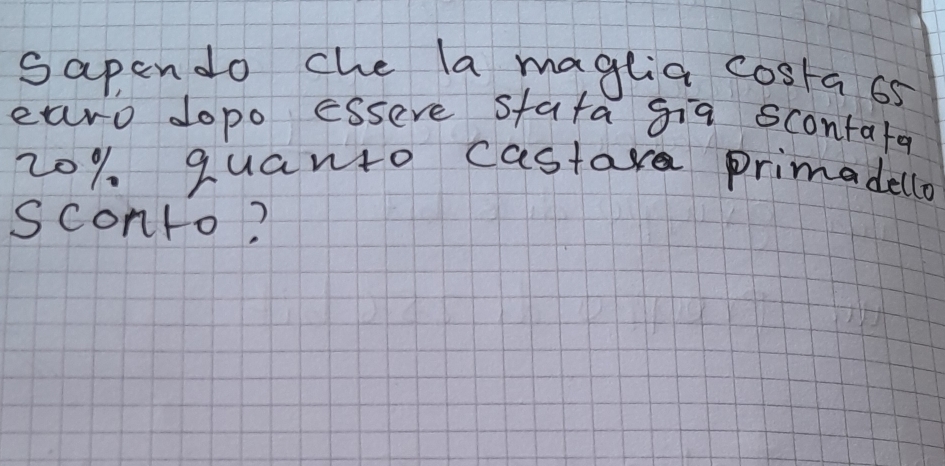 Sapendo che la maglia costa 65
euro dopo essere stata già scontata
20% quanto costava prima dello
sconto?